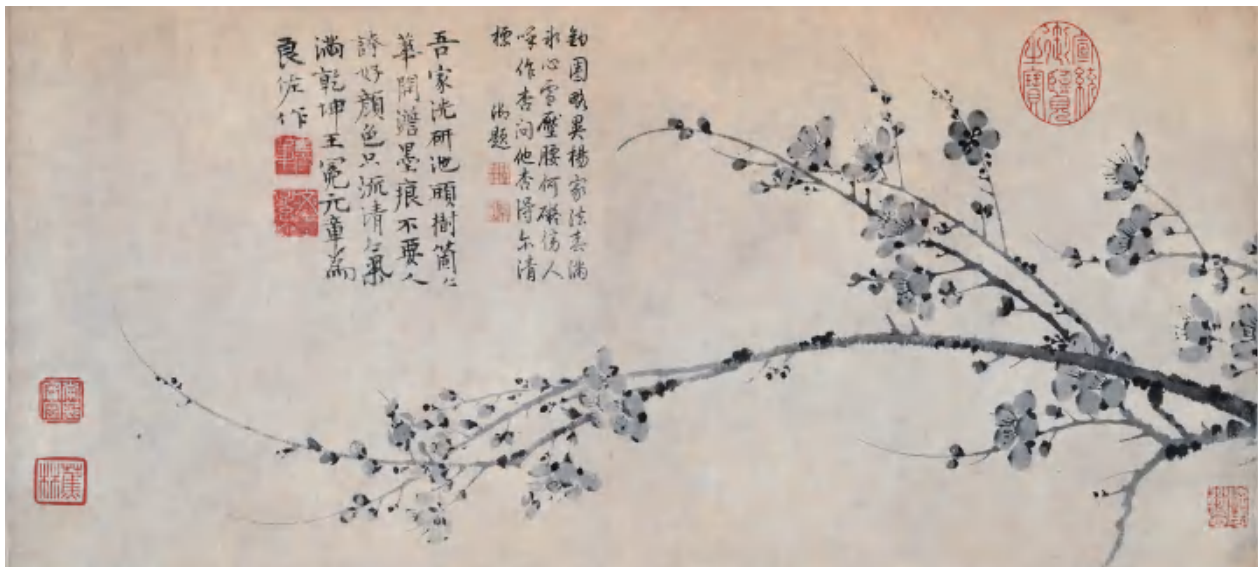 宣統
御覽
之寶
鈎圈畧異楊家法春滿
氷心雪壓腰何礙傍人
呼作杏問他杏得尔清
標 御題
吾家洗研池頭樹箇々
華開澹墨痕不要人
誇好顏色只流清氣
滿乾坤王冕元章為
良佐作
蕉林